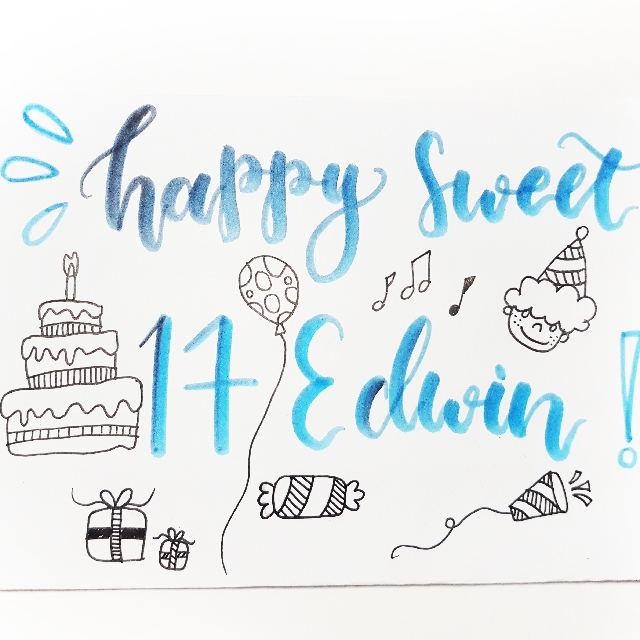 happy Sweet
17 Edwin!